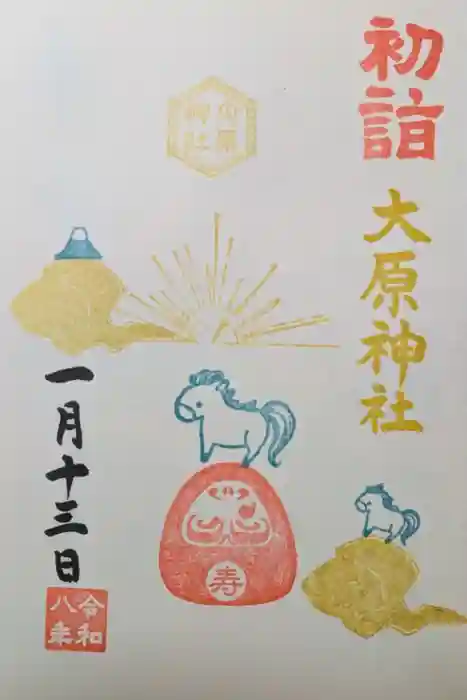 初詣
大原神社
大原
神社
寿
一月十三日
令和
八年